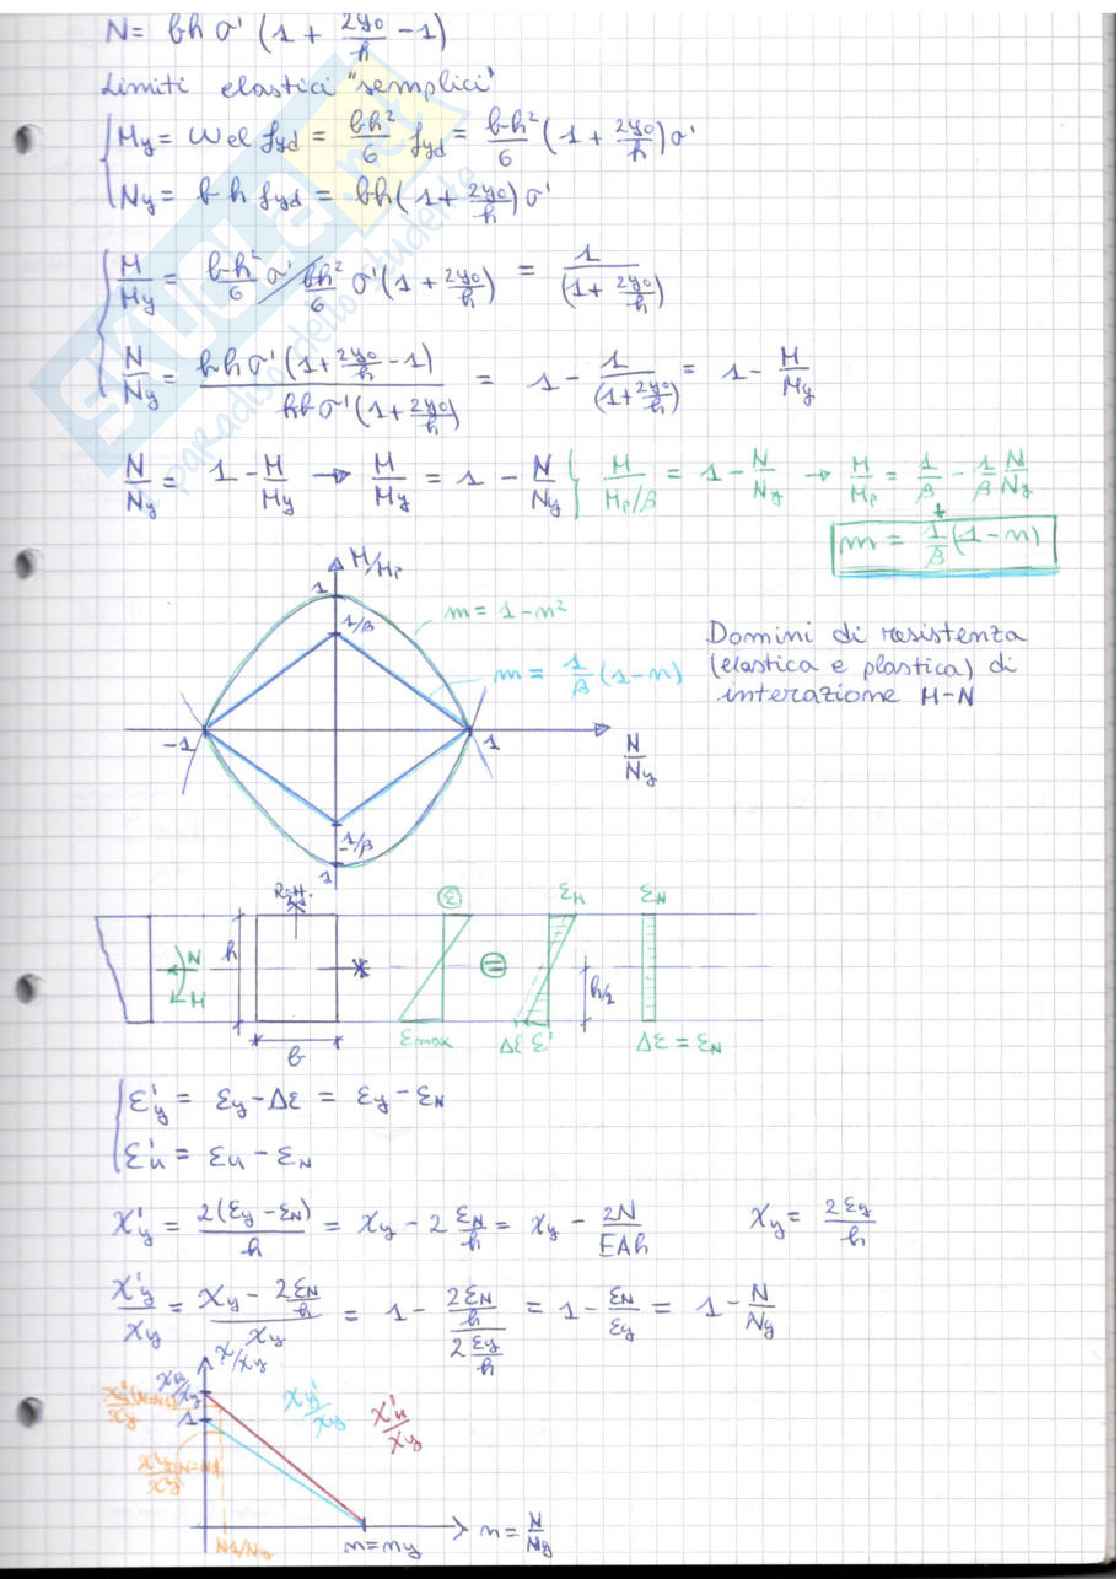 N = bh σ' (1 + 2y₀/h - 1)
Limiti elastici "semplici"
My = Wel fyd = bh²/6 fyd = bh²/6 (1 + 2y₀/h) σ'
Ny = b h fyd = bh (1 + 2y₀/h) σ'
M/My = bh²/6 σ' / bh²/6 σ' (1 + 2y₀/h) = 1/(1 + 2y₀/h)
N/Ny = bh σ' (1 + 2y₀/h - 1) / hb σ' (1 + 2y₀/h) = 1 - 1/(1 + 2y₀/h) = 1 - M/My
N/Ny = 1 - M/My → M/My = 1 - N/Ny { M/(Mp/β) = 1 - N/Ny → M/Mp = 1/β - 1/β N/Ny
↓
m = 1/β (1 - n)
M/Mp
1
m = 1 - n²
1/β
m = 1/β (1 - n)
Domini di resistenza
(elastica e plastica) di
interazione M-N
-1
1
N/Ny
-1/β
1
ε
εM
εN
N
M
h
h/2
b
εmax
Δε ε'
Δε = εN
ε'y = εy - Δε = εy - εN
ε'u = εu - εN
χ'y = 2(εy - εN)/h = χy - 2 εN/h = χy - 2N/EAh
χy = 2εy/h
χ'y/χy = (χy - 2εN/h)/χy = 1 - (2εN/h)/(2εy/h) = 1 - εN/εy = 1 - N/Ny
χ/χy
χu/χy
χ'y/χy
χ'u/χy
1
n = ny
n = N/Ny
SKUOLA.net
paradiso dello studente